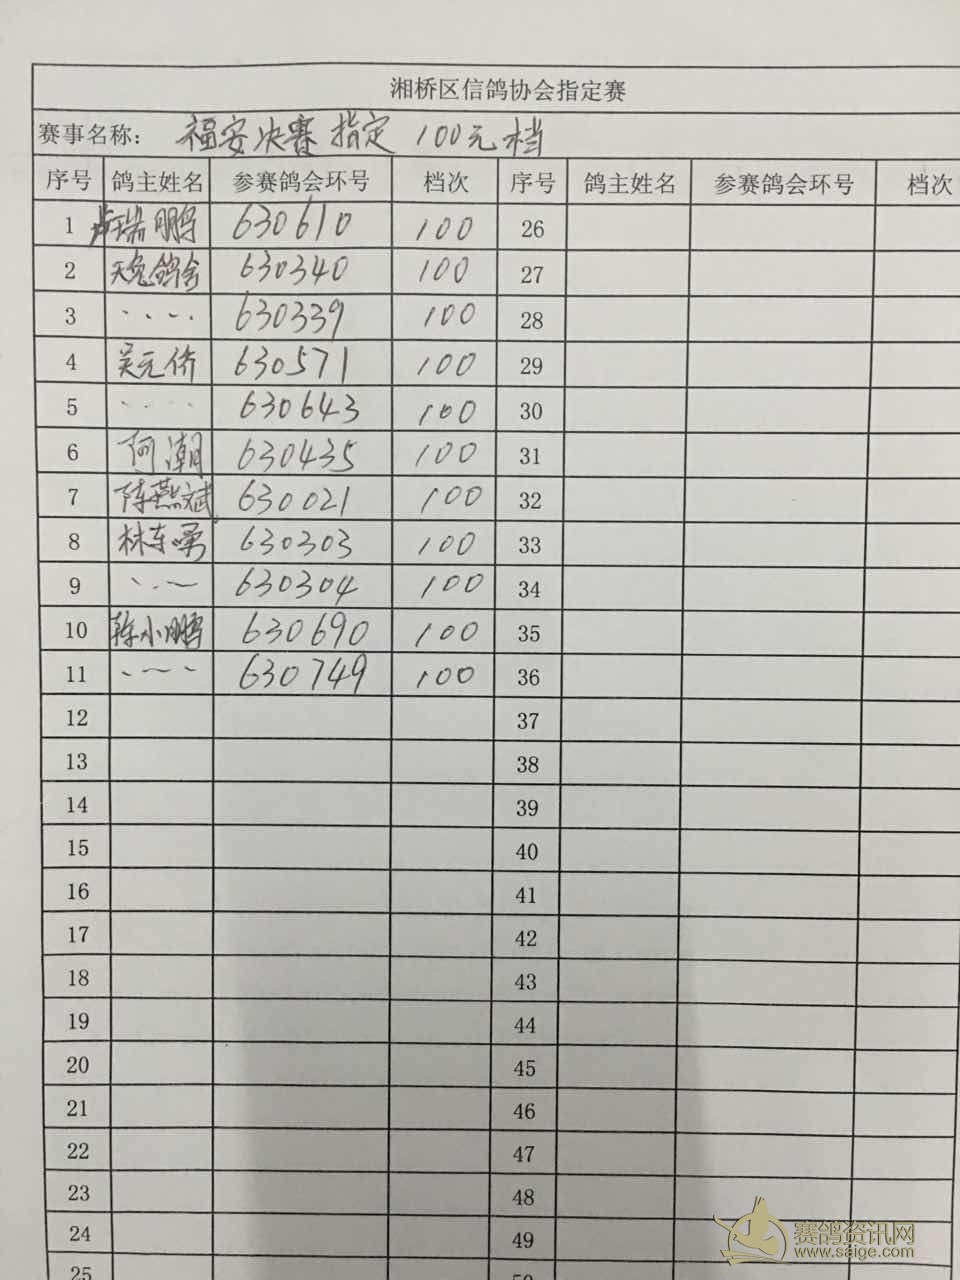 湘桥区信鸽协会指定赛
赛事名称: 福安决赛指定 100元档
序号 鸽主姓名 参赛鸽会环号 档次 序号 鸽主姓名 参赛鸽会环号 档次
1 卢瑞鹏 630610 100 26
2 天兔鸽舍 630340 100 27
3 、、、、 630339 100 28
4 吴元侨 630571 100 29
5 、、、、 630643 100 30
6 阿潮 630435 100 31
7 陈燕斌 630021 100 32
8 林东勇 630303 100 33
9 、、、 630304 100 34
10 陈小鹏 630690 100 35
11 、、、、 630749 100 36
12 37
13 38
14 39
15 40
16 41
17 42
18 43
19 44
20 45
21 46
22 47
23 48
24 49
25 50
赛鸽资讯网
www.saige.com